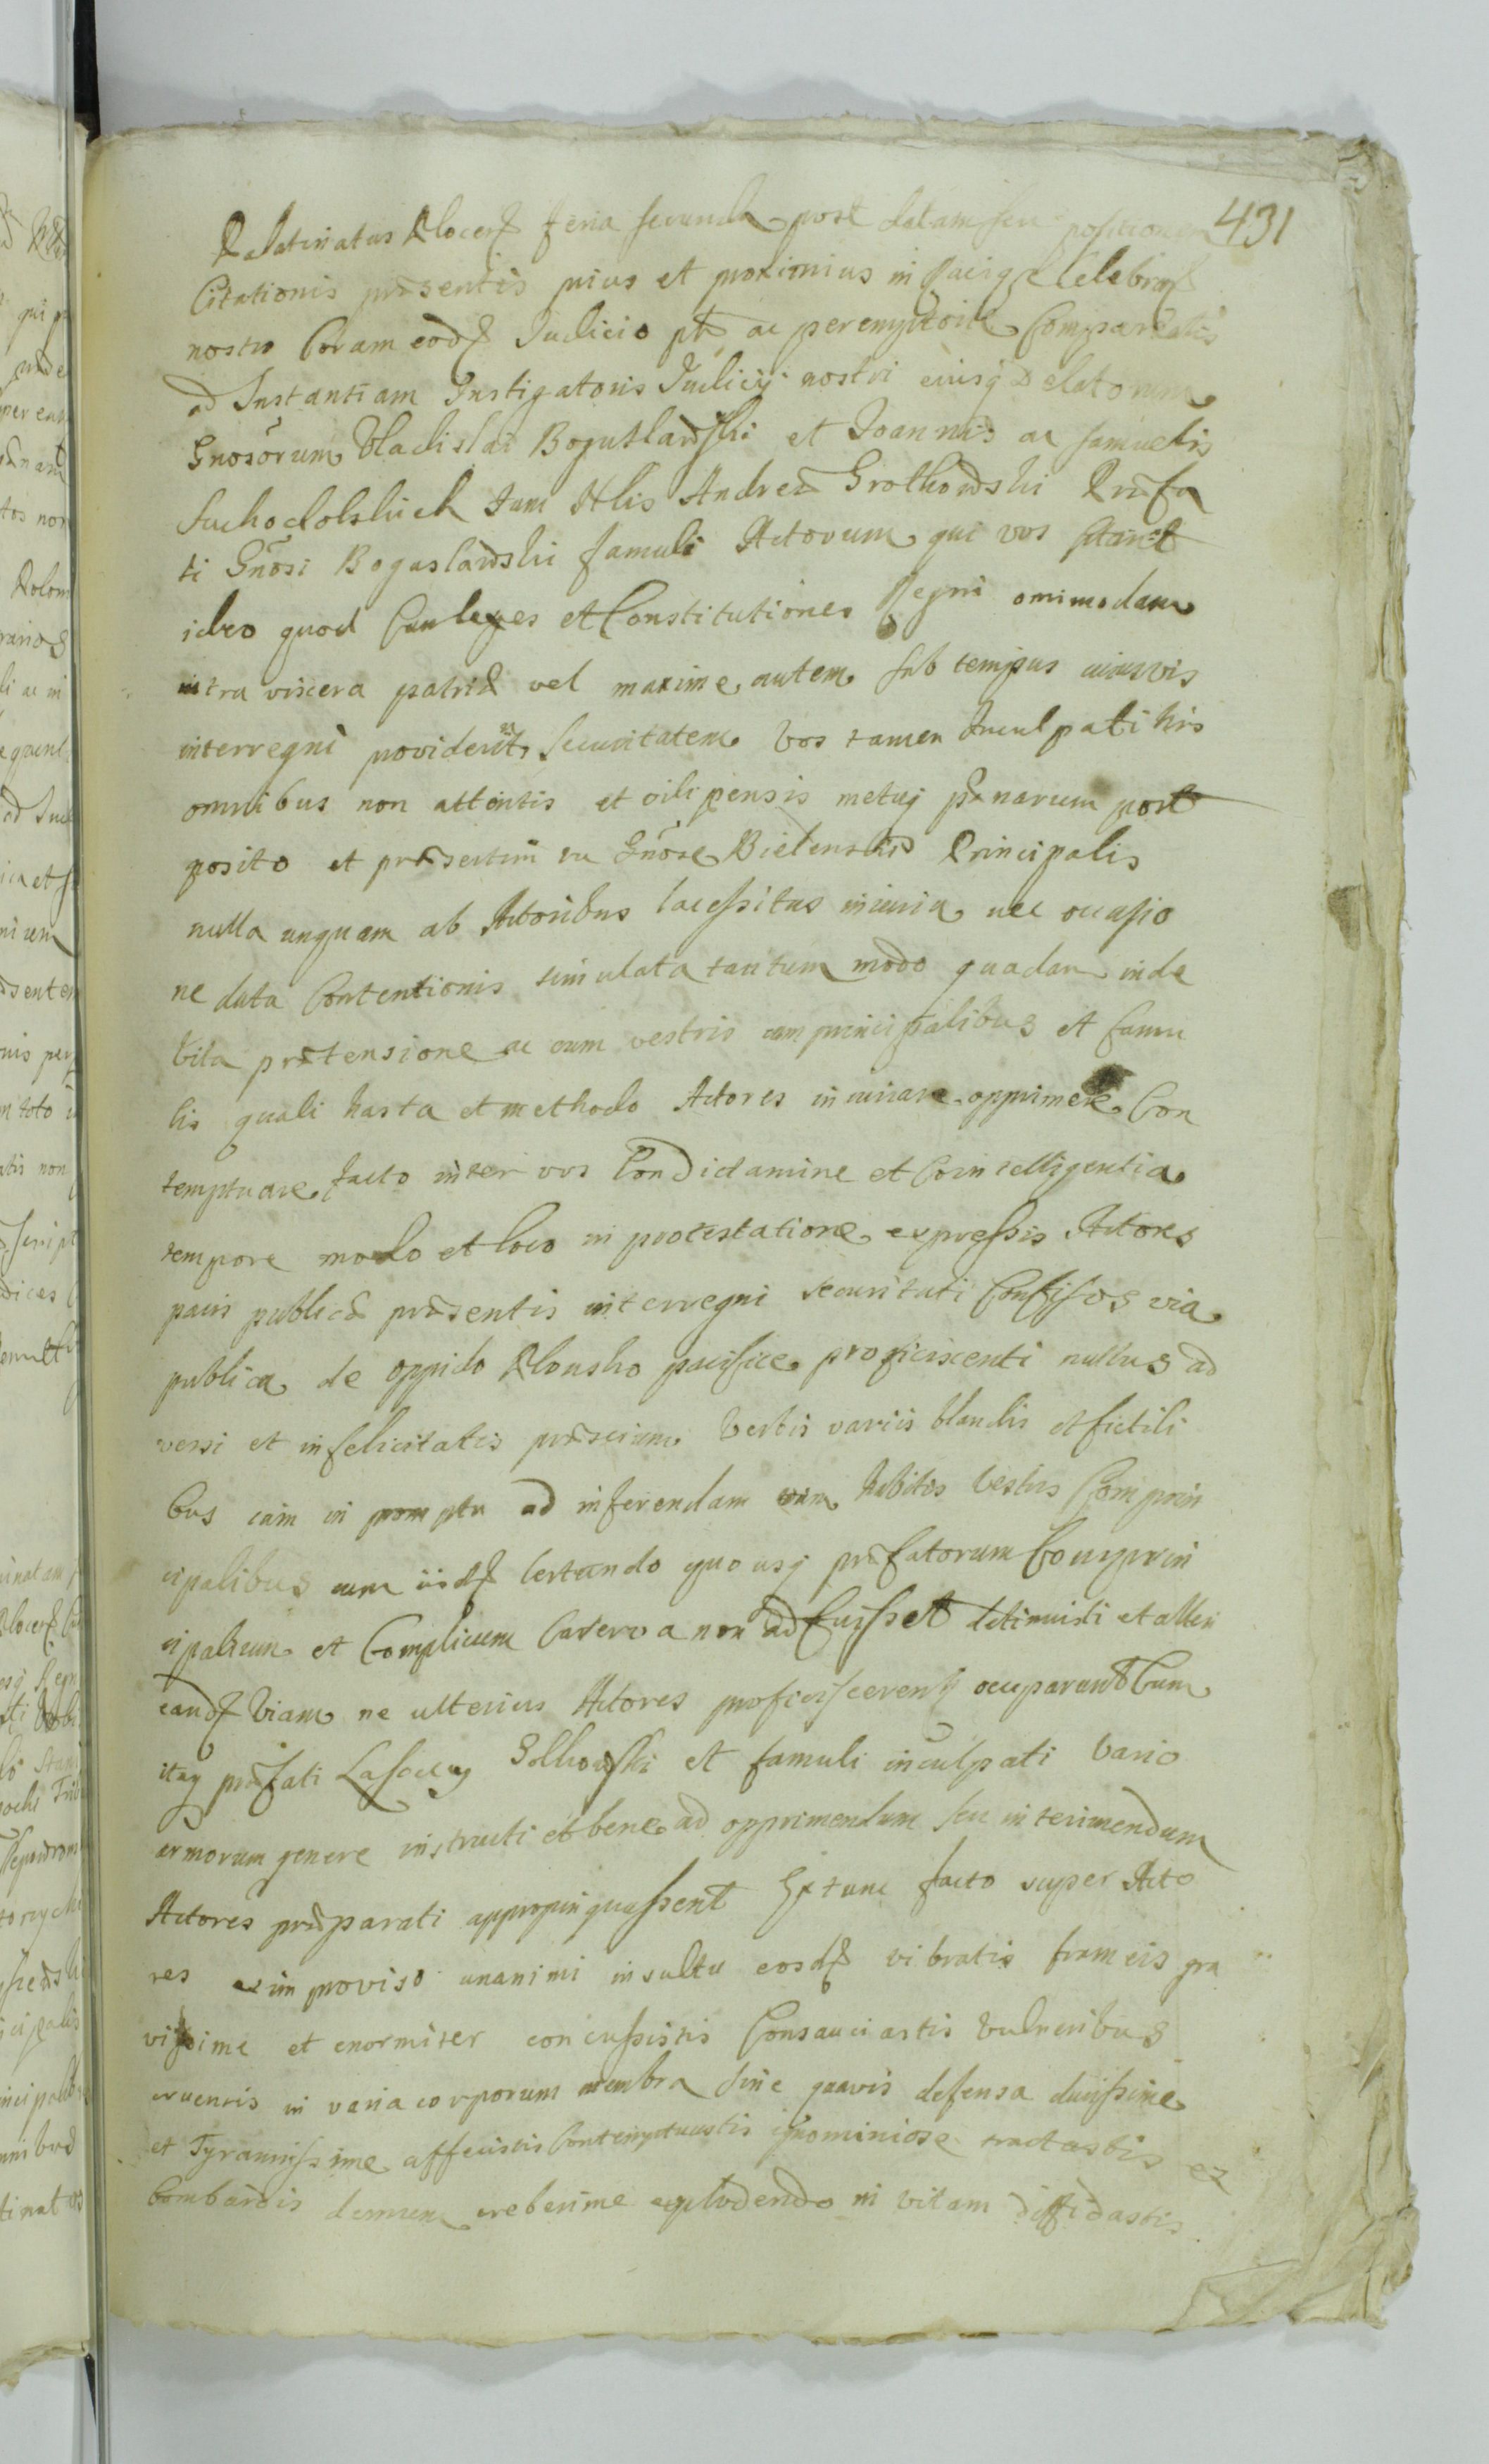 431
Palatinatus Plocen feria secunda post datam seu positionem
Citationis præsentis prius et proximius in Raciąż Celebran
nostro Coram eodem Judicio pte ac peremptorie Compareatis
ad Instantiam Instigatoris Judicij nostri eiusq Delatorum
Gnosorum Vladislai Boguslawski et Joannis ac Samuelis
Suchodolskich tum Nlis Andreæ Grotkowski Præfa
ti Gnosi Boguslawski famuli Actorum qui vos citant
ideo quod Cum leges et Constitutiones Regni omnimodam
intra viscera patriæ vel maxime autem sub tempus cuiusvis
interregni providerint securitatem vos tamen Inculpati his
omnibus non attentis et vilipensis metuq pænarum post
posito et præsertim tu Gnose Bielenski Principalis
nulla unquam ab Actoribus lacessitus iniuria nec occasio
ne data Contentionis simulata tantum modo quadam inde
bita prætensione ac cum vestris comprincipalibus et famu
lis quali hasta et methodo Actores iniuriare opprimere Con
temptuare facto inter vos Condictamine et Cointelligentia
tempore modo et loco in protestatione expressis Actores
pacis publicæ præsentis interregni securitati Confisos via
publica de oppido Plonsko pacifice proficiscenti nullius ad
versi et infelicitatis præscium verbis variis blandis et fictili
bus eum in promptu ad inferendam vim habitos vestris Comprin
cipalibus cum iisdem certando quousq præfatorum Comprin
cipalium et Complicum Caterva non adfuisset detinuisti et allici
eandem viam ne ulterius Actores proficiscerentq occuparunt Cum
itaq præfati et famuli inculpati vario
armorum genere instructi et bene ad opprimendum seu interimendum
Actores præparati appropinquassent Extunc facto super Acto
res ex improviso unanimi insultu eosdem vibratis frameis gra
vissime et enormiter concussistis Consauciastis vulneribus
cruentis in varia corporum membra sine quavis defensa durissime
et Tyrannissime affecistis Contemptuastis ignominiose tractastis ex
bombardis demum creberime explodendo in vitam diffidastis